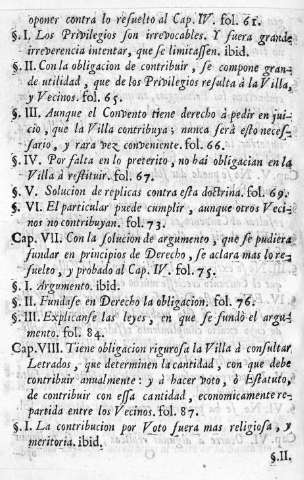 oponer contra lo resuelto al Cap. IV. fol. 61.
§. I. Los Privilegios son irrevocables. Y fuera grande
irreverencia intentar, que se limitassen. ibid.
§. II. Con la obligacion de contribuir, se compone gran-
de utilidad, que de los Privilegios resulta à la Villa,
y Vecinos. fol. 65.
§. III. Aunque el Convento tiene derecho à pedir en jui-
cio, que la Villa contribuya; nunca serà esto neces-
sario, y rara vez conveniente. fol. 66.
§. IV. Por falta en lo preterito, no hai obligacian en la
Villa à restituir. fol. 67.
§. V. Solucion de replicas contra esta doctrina. fol. 69.
§. VI. El particular puede cumplir, aunque otros Veci-
nos no contribuyan. fol. 73.
Cap. VII. Con la solucion de argumento, que se pudiera
fundar en principios de Derecho, se aclara mas lo re-
suelto, y probado al Cap. IV. fol. 75.
§. I. Argumento. ibid.
§. II. Fundase en Derecho la obligacion. fol. 76.
§. III. Explicanse las leyes, en que se fundò el argu-
mento. fol. 84.
Cap. VIII. Tiene obligacion rigurosa la Villa à consultar
Letrados, que determinen la cantidad, con que debe
contribuir anualmente: y à hacer voto, ò Estatuto,
de contribuir con essa cantidad, economicamente re-
partida entre los Vecinos. fol. 87.
§. I. La contribucion por Voto fuera mas religiosa, y
meritoria. ibid.
§. II.